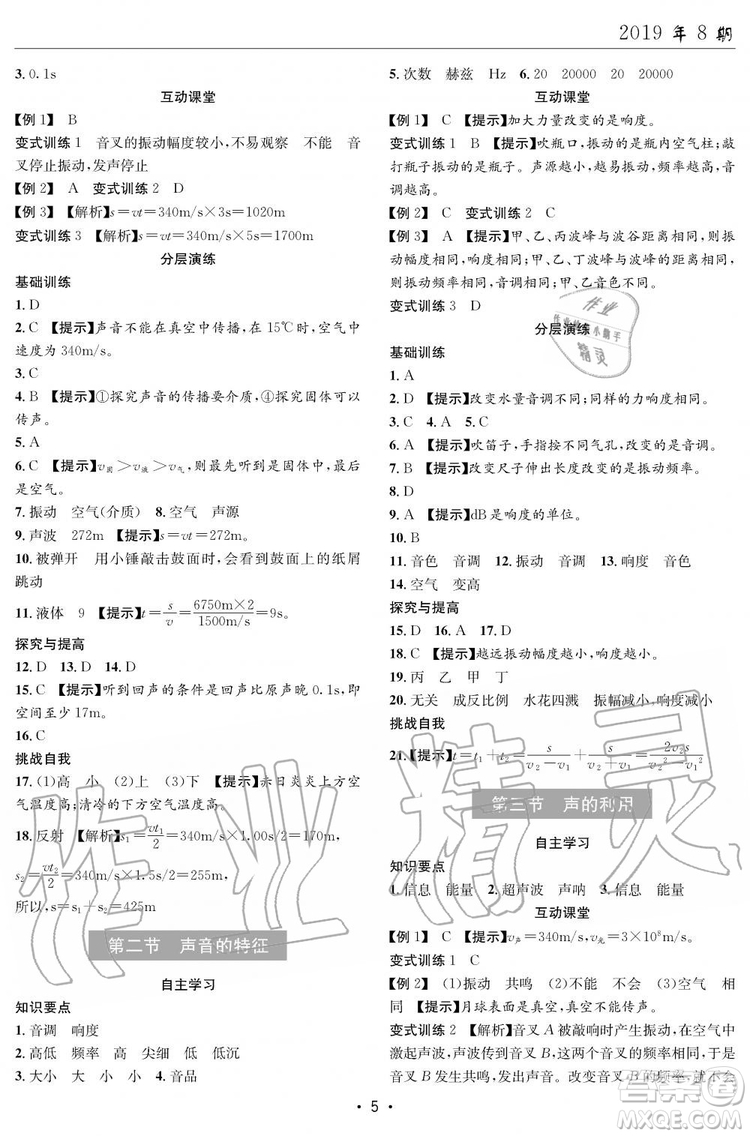 2019 年 8 期
3. 0.1s
互动课堂
【例 1】 B
变式训练 1 音叉的振动幅度较小,不易观察 不能 音
叉停止振动,发声停止
【例 2】 A 变式训练 2 D
【例 3】【解析】s=vt=340m/s×3s=1020m
变式训练 3 【解析】s=vt=340m/s×5s=1700m
分层演练
基础训练
1. D
2. C 【提示】声音不能在真空中传播,在 15℃时,空气中
速度为 340m/s。
3. C 【提示】①探究声音的传播要介质,④探究固体可以
传声。
5. A
6. C 【提示】v固>v液>v气,则最先听到是固体中,最后
是空气。
7. 振动 空气(介质) 8. 空气 声源
9. 声波 272m 【提示】s=vt=272m
10. 被弹开 用小锤敲击鼓面时,会看到鼓面上的纸屑
跳动
11. 液体 9 【提示】t=s/v=6750m×2/1500m/s=9s。
探究与提高
12. D 13. D 14. D
15. C 【提示】听到回声的条件是回声比原声晚 0.1s,即
空间至少 17m。
16. C
挑战自我
17. (1)高 小 (2)上 (3)下 【提示】赤日炎炎上方空
气温度高;清冷的下方空气温度高。
18. 反射 【解析】s₁=vt₁/2=340m/s×1.00s/2=170m,
s₂=vt₂/2=340m/s×1.5s/2=255m,
所以,s=s₁+s₂=425m
第二节 声音的特征
自主学习
知识要点
1. 音调 响度
2. 高低 频率 高 尖细 低 低沉
3. 大小 大 小 4. 音品
5. 次数 赫兹 Hz 6. 20 20000 20 20000
互动课堂
【例 1】 C 【提示】加大力量改变的是响度。
变式训练 1 B 【提示】吹瓶口,振动的是瓶内空气柱;敲
打瓶子振动的是瓶子。声源越小,越易振动,频率越高,音
调越高。
【例 2】 C 变式训练 2 C
【例 3】 C 【提示】甲、乙、丙波峰与波谷距离相同,则振
动幅度相同,响度相同;甲、乙、丁波峰与波峰距离相同,
则振动频率相同,音调相同;甲、乙音色相同。
变式训练 3 D
分层演练
基础训练
1. A
2. D 【提示】改变水量音调不同;同样的力量响度相同。
3. C 4. A 5. C
6. A 【提示】吹笛子,手指按不同气孔,改变的是音调。
7. C 【提示】改变尺子伸出长度改变的是振动频率。
8. D
9. A 【提示】dB 是响度的单位。
10. B
11. 音色 音调 12. 振动 音调 13. 响度 音色
14. 空气 变高
探究与提高
15. D 16. A 17. D
18. B 【提示】越远振动幅度越小,响度越小。
19. 丙 乙 甲 丁
20. 无关 成反比例 水花四溅 振幅减小,响度减小
挑战自我
21. 【提示】t=t₁+t₂=
第三节 声的利用
自主学习
知识要点
1. 信息 能量 2. 超声波 声呐 3. 信息 能量
互动课堂
【例 1】 C 【提示】v声=340m/s,v光=3×10⁸m/s。
变式训练 1 C
【例 2】 (1)振动 共鸣 (2)不能 不会 (3)空气 相
同 【提示】月球表面是真空,真空不能传声。
变式训练 2 【解析】音叉 A 被敲响时产生振动,在空气中
激起声波,声波传到音叉 B,音叉 B 的频率与声波的频率
相同,则发生共鸣,产生声音。改变音叉 B 的频率,则不会
• 5 •